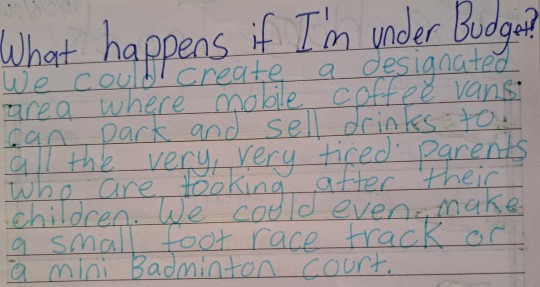 What happens if I'm under Budget?
We could create a designated
area where mobile coffee vans
can park and sell drinks to
all the very, very tired parents
who are looking after their
children. We could even make
a small foot race track or
a mini Badminton court.